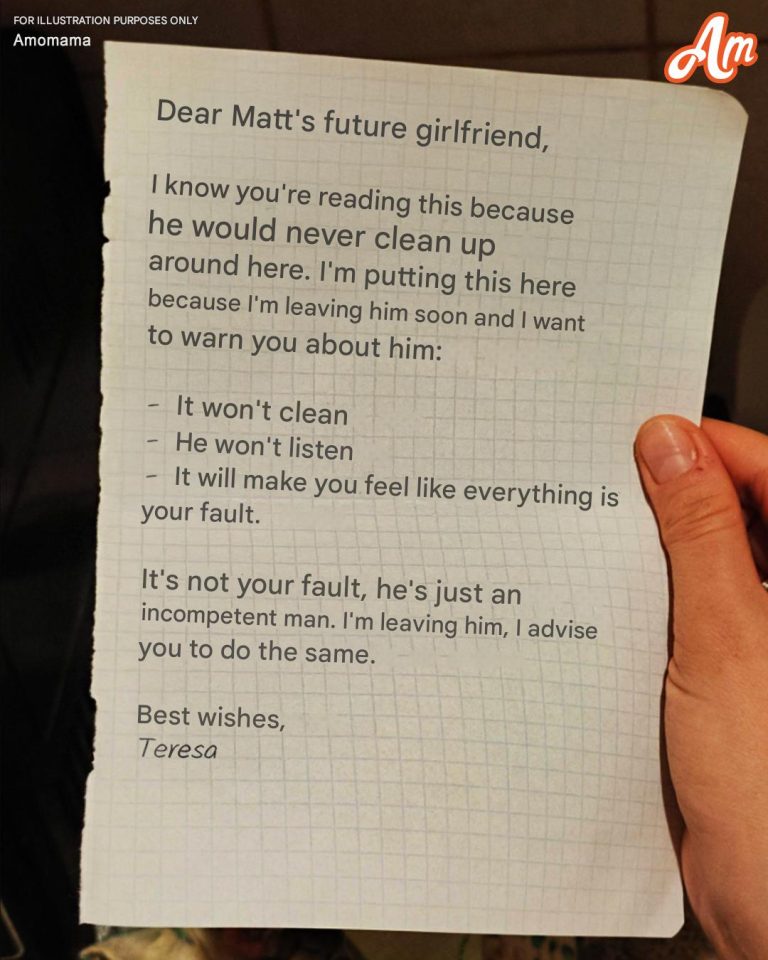 FOR ILLUSTRATION PURPOSES ONLY
Amomama
Am
Dear Matt's future girlfriend,
I know you're reading this because
he would never clean up
around here. I'm putting this here
because I'm leaving him soon and I want
to warn you about him:
- It won't clean
- He won't listen
- It will make you feel like everything is
your fault.
It's not your fault, he's just an
incompetent man. I'm leaving him, I advise
you to do the same.
Best wishes,
Teresa